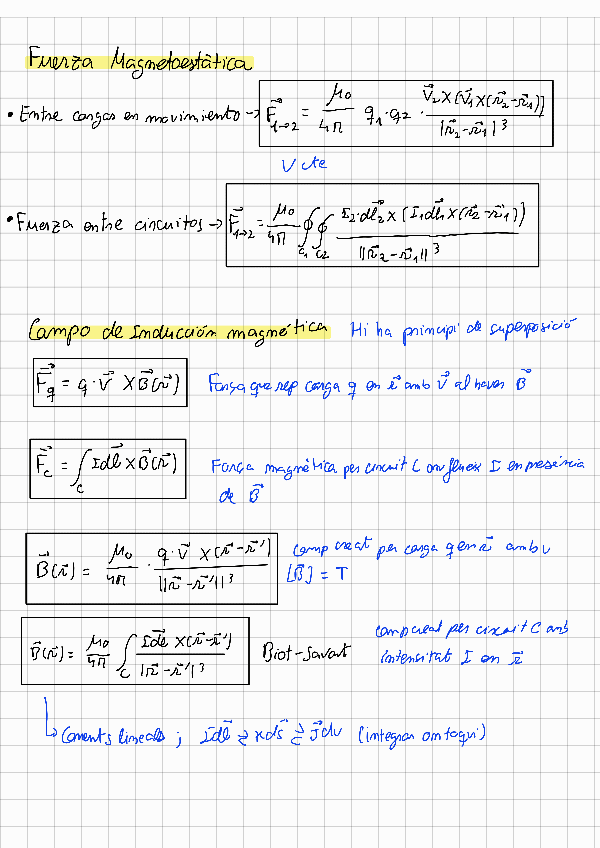 Fuerza Magnetoestática
• Entre cargas en movimiento → F⃗₁→₂ = μ₀/4π q₁·q₂ · v⃗₂×(v⃗₁×(r⃗₂-r⃗₁))/|r⃗₂-r⃗₁|³
V cte
• Fuerza entre circuitos → F⃗₁→₂ = μ₀/4π ∮c₁ ∮c₂ I₂·dl⃗₂×(I₁dl⃗₁×(r⃗₂-r⃗₁))/||r⃗₂-r⃗₁||³
Campo de Inducción magnética Hi ha principi de superposició
F⃗q = q·v⃗ × B⃗(r⃗) Força que rep carga q en r⃗ amb v⃗ al haver B⃗
F⃗c = ∫c Idl⃗ × B⃗(r⃗) Força magnética per circuit C on flueix I en presència
de B⃗
B⃗(r⃗) = μ₀/4π · q·v⃗ ×(r⃗-r⃗')/||r⃗-r⃗'||³ Camp creat per carga q en r⃗ amb v
[B⃗] = T
B⃗(r⃗) = μ₀/4π ∫c Idl⃗ ×(r⃗-r⃗')/|r⃗-r⃗'|³ Biot-Savart camp creat per circuit C amb
intensitat I en r⃗
↳ Corrents lineals ; Idl⃗ ≷ κds⃗ ≷ J⃗dv (integrar